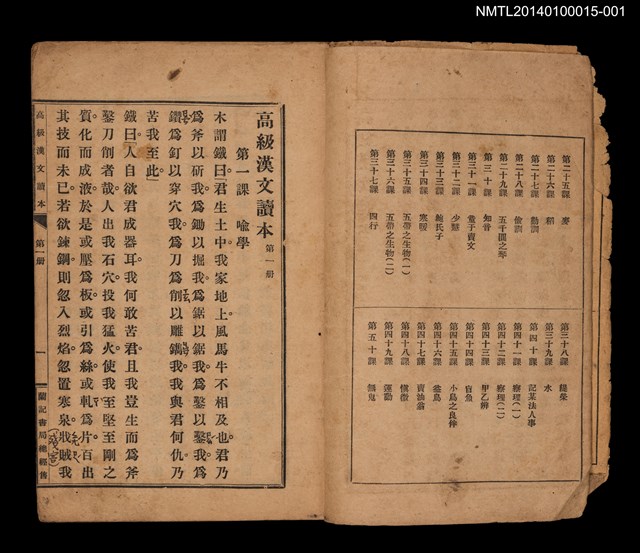 NMTL20140100015-001
第二十五課　麥
第二十六課　稻
第二十七課　勸訓
第二十八課　儉訓
第二十九課　五千圓之琴
第三十課　知音
第三十一課　童子賣文
第三十二課　少慧
第三十三課　鮑氏子
第三十四課　寒暖
第三十五課　五帶之生物(一)
第三十六課　五帶之生物(二)
第三十七課　四行
第三十八課　緹縈
第三十九課　水
第四十課　記某法人事
第四十一課　察理(一)
第四十二課　察理(二)
第四十三課　甲乙辨
第四十四課　盲魚
第四十五課　小鳥之良伴
第四十六課　養鳥
第四十七課　賣油翁
第四十八課　慎微
第四十九課　運動
第五十課　無鬼
高級漢文讀本　第一册
第一課　喩學
木謂鐵曰「君生土中我家地上。風馬牛不相及也。君乃
爲斧以斫我。爲鋤以掘我。爲鋸以鋸我。爲鑿以鑿我。爲
鑽爲釘以穿穴我。爲刀爲削以雕鐫我。我與君何仇乃
苦我至此」
鐵曰「人自欲君成器耳。我何敢苦君。且我豈生而爲斧
鑿刀削者哉。人出我石穴投我猛火使我至堅至剛之
質化而成液。於是或壓爲板或引爲絲或軋爲片。百出
其技而未已。若欲鍊鋼則忽入烈焰忽置寒泉。戕賊我
高級漢文讀本　第一册　一　蘭記書局總經售